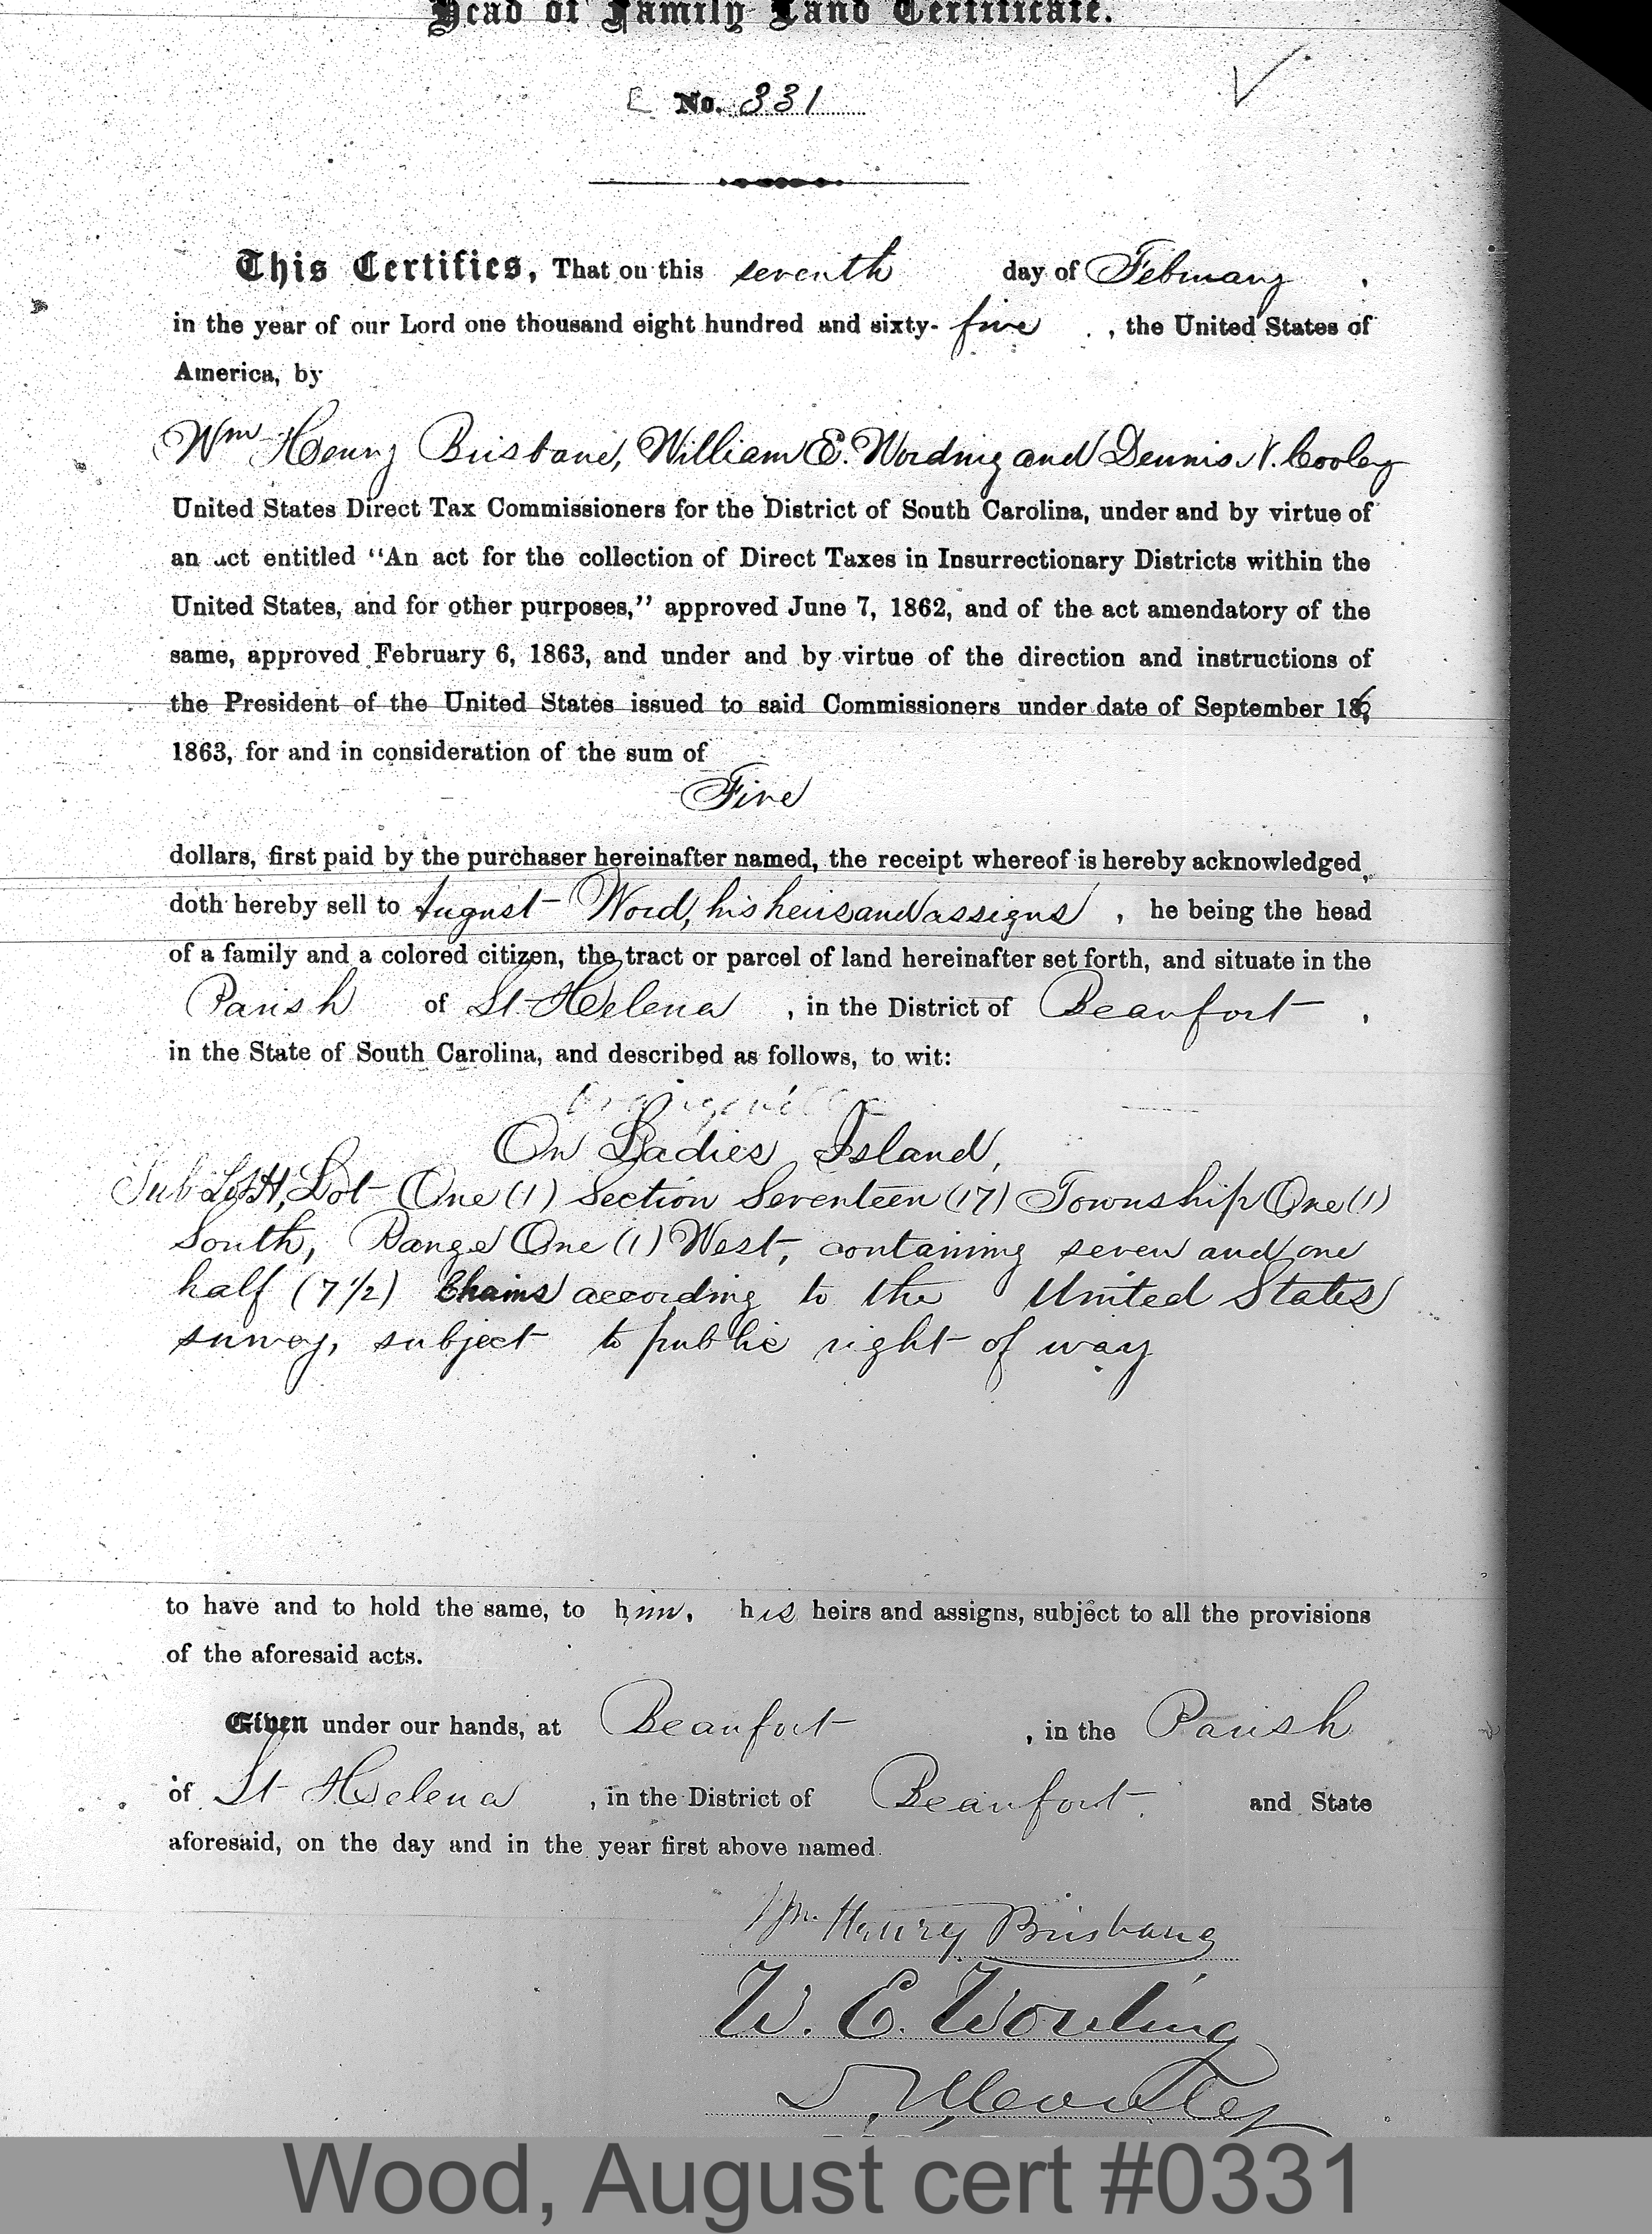 Head of Family Land Certificate.
No. 331
This Certifies, That on this seventh day of February ,
in the year of our Lord one thousand eight hundred and sixty-five , the United States of
America, by
Wm Henry Brisbane, William E. Wording and Dennis N. Cooley
United States Direct Tax Commissioners for the District of South Carolina, under and by virtue of
an act entitled "An act for the collection of Direct Taxes in Insurrectionary Districts within the
United States, and for other purposes," approved June 7, 1862, and of the act amendatory of the
same, approved February 6, 1863, and under and by virtue of the direction and instructions of
the President of the United States issued to said Commissioners under date of September 16,
1863, for and in consideration of the sum of
Five
dollars, first paid by the purchaser hereinafter named, the receipt whereof is hereby acknowledged,
doth hereby sell to August Wood, his heirs and assigns , he being the head
of a family and a colored citizen, the tract or parcel of land hereinafter set forth, and situate in the
Parish of St Helena , in the District of Beaufort ,
in the State of South Carolina, and described as follows, to wit:
On Ladies Island,
Sub Lot H, Lot One (1) Section Seventeen (17) Township One (1)
South, Range One (1) West, containing seven and one
half (7 1/2) Chains according to the United States
survey, subject to public right of way
to have and to hold the same, to him, his heirs and assigns, subject to all the provisions
of the aforesaid acts.
Given under our hands, at Beaufort , in the Parish
of St Helena , in the District of Beaufort. and State
aforesaid, on the day and in the year first above named.
Wm. Henry Brisbane
W. E. Wording
D. N. Cooley
Wood, August cert #0331